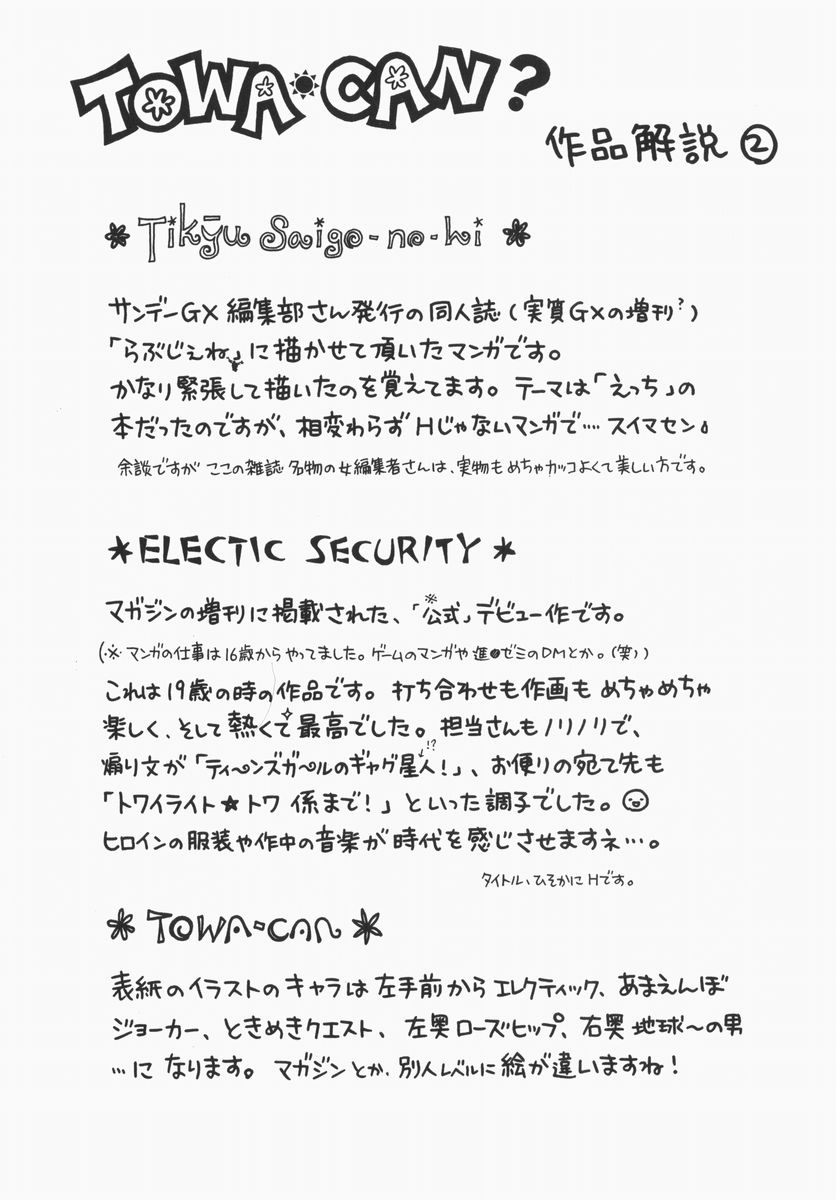 TOWA CAN?
作品解説 ②
Tikyu Saigo-no-hi
サンデーGX 編集部さん発行の同人誌(実質GXの増刊?)
「らぶじぇね」に描かせて頂いたマンガです。
かなり緊張して描いたのを覚えてます。テーマは「えっち」の
本だったのですが、相変わらず Hじゃないマンガで…‥ スイマセン
余談ですが ここの雑誌 名物の女編集者さんは、実物も めちゃカッコよくて美しい方です。
*ELECTIC SECURITY*
マガジンの増刊に掲載された、「公式」※デビュー作です。
(※ マンガの仕事は16歳から やってました。ゲームのマンガや 進●ゼミのDMとか。(笑))
これは19歳の時の作品です。打ち合わせも作画も めちゃめちゃ
楽しく、そして 熱くて最高でした。担当さんもノリノリで、
煽り文が「ティ〜ンズガ〜ルのギャグ星人!」↓!?、お便りの宛て先も
「トワイライト★トワ 係まで!」といった調子でした。
ヒロインの服装や作中の音楽が時代を感じさせますネ…。
タイトル、ひそかに Hです。
* TOWA CAN *
表紙のイラストのキャラは左手前からエレクティック、あまえんぼ
ジョーカー、ときめきクエスト、左奥ローズヒップ、右奥 地球〜の男
…に なります。マガジンとか、別人レベルに絵が違いますね!